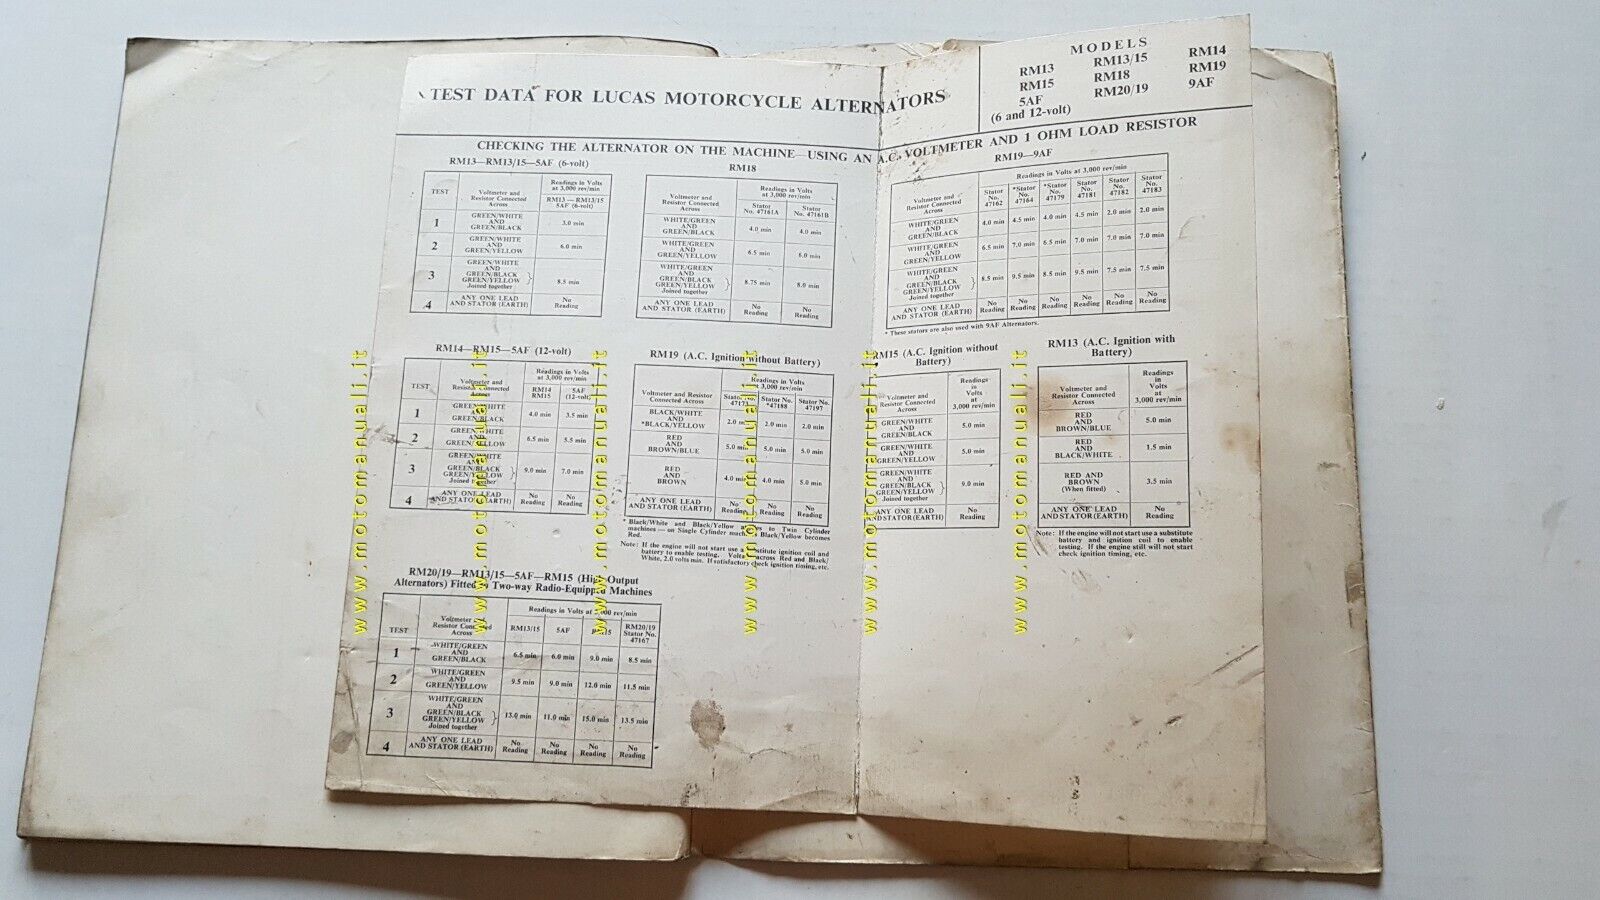 TEST DATA FOR LUCAS MOTORCYCLE ALTERNATORS
MODELS
RM13 RM13/15 RM14
RM15 RM18 RM19
5AF RM20/19 9AF
(6 and 12-volt)
CHECKING THE ALTERNATOR ON THE MACHINE—USING AN A.C. VOLTMETER AND 1 OHM LOAD RESISTOR
RM13—RM13/15—5AF (6-volt)
TEST
Voltmeter and
Resistor Connected
Across
Readings in Volts
at 3,000 rev/min
RM13 — RM13/15
5AF (6-volt)
1
GREEN/WHITE
AND
GREEN/BLACK
3.0 min
2
GREEN/WHITE
AND
GREEN/YELLOW
6.0 min
3
GREEN/WHITE
AND
GREEN/BLACK
GREEN/YELLOW
Joined together
8.5 min
4
ANY ONE LEAD
AND STATOR (EARTH)
No
Reading
RM18
Voltmeter and
Resistor Connected
Across
Readings in Volts
at 3,000 rev/min
Stator
No. 47161A
Stator
No. 47161B
WHITE/GREEN
AND
GREEN/BLACK
4.0 min 4.0 min
WHITE/GREEN
AND
GREEN/YELLOW
6.5 min 6.0 min
WHITE/GREEN
AND
GREEN/BLACK
GREEN/YELLOW
Joined together
8.75 min 8.0 min
ANY ONE LEAD
AND STATOR (EARTH)
No No
Reading Reading
RM19—9AF
Voltmeter and
Resistor Connected
Across
Readings in Volts at 3,000 rev/min
Stator *Stator *Stator Stator Stator Stator
No. No. No. No. No. No.
47162 47164 47179 47181 47182 47183
WHITE/GREEN
AND
GREEN/BLACK
4.0 min 4.5 min 4.0 min 4.5 min 2.0 min 2.0 min
WHITE/GREEN
AND
GREEN/YELLOW
6.5 min 7.0 min 6.5 min 7.0 min 7.0 min 7.0 min
WHITE/GREEN
AND
GREEN/BLACK
GREEN/YELLOW
Joined together
8.5 min 9.5 min 8.5 min 9.5 min 7.5 min 7.5 min
ANY ONE LEAD
AND STATOR (EARTH)
No No No No No No
Reading Reading Reading Reading Reading Reading
* These stators are also used with 9AF Alternators.
RM14—RM15—5AF (12-volt)
TEST
Voltmeter and
Resistor Connected
Across
Readings in Volts
at 3,000 rev/min
RM14
RM15
5AF
(12-volt)
1
GREEN/WHITE
AND
GREEN/BLACK
4.0 min 3.5 min
2
GREEN/WHITE
AND
GREEN/YELLOW
6.5 min 5.5 min
3
GREEN/WHITE
AND
GREEN/BLACK
GREEN/YELLOW
Joined together
9.0 min 7.0 min
4
ANY ONE LEAD
AND STATOR (EARTH)
No No
Reading Reading
RM19 (A.C. Ignition without Battery)
Voltmeter and Resistor
Connected Across
Readings in Volts
at 3,000 rev/min
Stator No.
Stator No.
*47188
Stator No.
47197
BLACK/WHITE
AND
*BLACK/YELLOW
2.0 min 2.0 min 2.0 min
RED
AND
BROWN/BLUE
5.0 min 5.0 min 5.0 min
RED
AND
BROWN
4.0 min 4.0 min 5.0 min
ANY ONE LEAD
AND STATOR (EARTH)
No No No
Reading Reading Reading
* Black/White and Black/Yellow applies to Twin Cylinder
machines — on Single Cylinder machines Black/Yellow becomes
Red.
Note: If the engine will not start use a substitute ignition coil and
battery to enable testing. Volts across Red and Black/
White, 2.0 volts min. If satisfactory check ignition timing, etc.
RM15 (A.C. Ignition without
Battery)
Voltmeter and
Resistor Connected
Across
Readings
in
Volts
at
3,000 rev/min
GREEN/WHITE
AND
GREEN/BLACK
5.0 min
GREEN/WHITE
AND
GREEN/YELLOW
5.0 min
GREEN/WHITE
AND
GREEN/BLACK
GREEN/YELLOW
Joined together
9.0 min
ANY ONE LEAD
AND STATOR (EARTH)
No
Reading
RM13 (A.C. Ignition with
Battery)
Voltmeter and
Resistor Connected
Across
Readings
in
Volts
at
3,000 rev/min
RED
AND
BROWN/BLUE
5.0 min
RED
AND
BLACK/WHITE
1.5 min
RED AND
BROWN
(When fitted)
3.5 min
ANY ONE LEAD
AND STATOR (EARTH)
No
Reading
Note: If the engine will not start use a substitute
battery and ignition coil to enable
testing. If the engine still will not start
check ignition timing, etc.
RM20/19—RM13/15—5AF—RM15 (High Output
Alternators) Fitted to Two-way Radio-Equipped Machines
TEST
Voltmeter and
Resistor Connected
Across
Readings in Volts at 3,000 rev/min
RM13/15 5AF RM15
RM20/19
Stator No.
47167
1
WHITE/GREEN
AND
GREEN/BLACK
6.5 min 6.0 min 9.0 min 8.5 min
2
WHITE/GREEN
AND
GREEN/YELLOW
9.5 min 9.0 min 12.0 min 11.5 min
3
WHITE/GREEN
AND
GREEN/BLACK
GREEN/YELLOW
Joined together
13.0 min 11.0 min 15.0 min 13.5 min
4
ANY ONE LEAD
AND STATOR (EARTH)
No No No No
Reading Reading Reading Reading
www.motomanuali.it
www.motomanuali.it
www.motomanuali.it
www.motomanuali.it
www.motomanuali.it
www.motomanuali.it